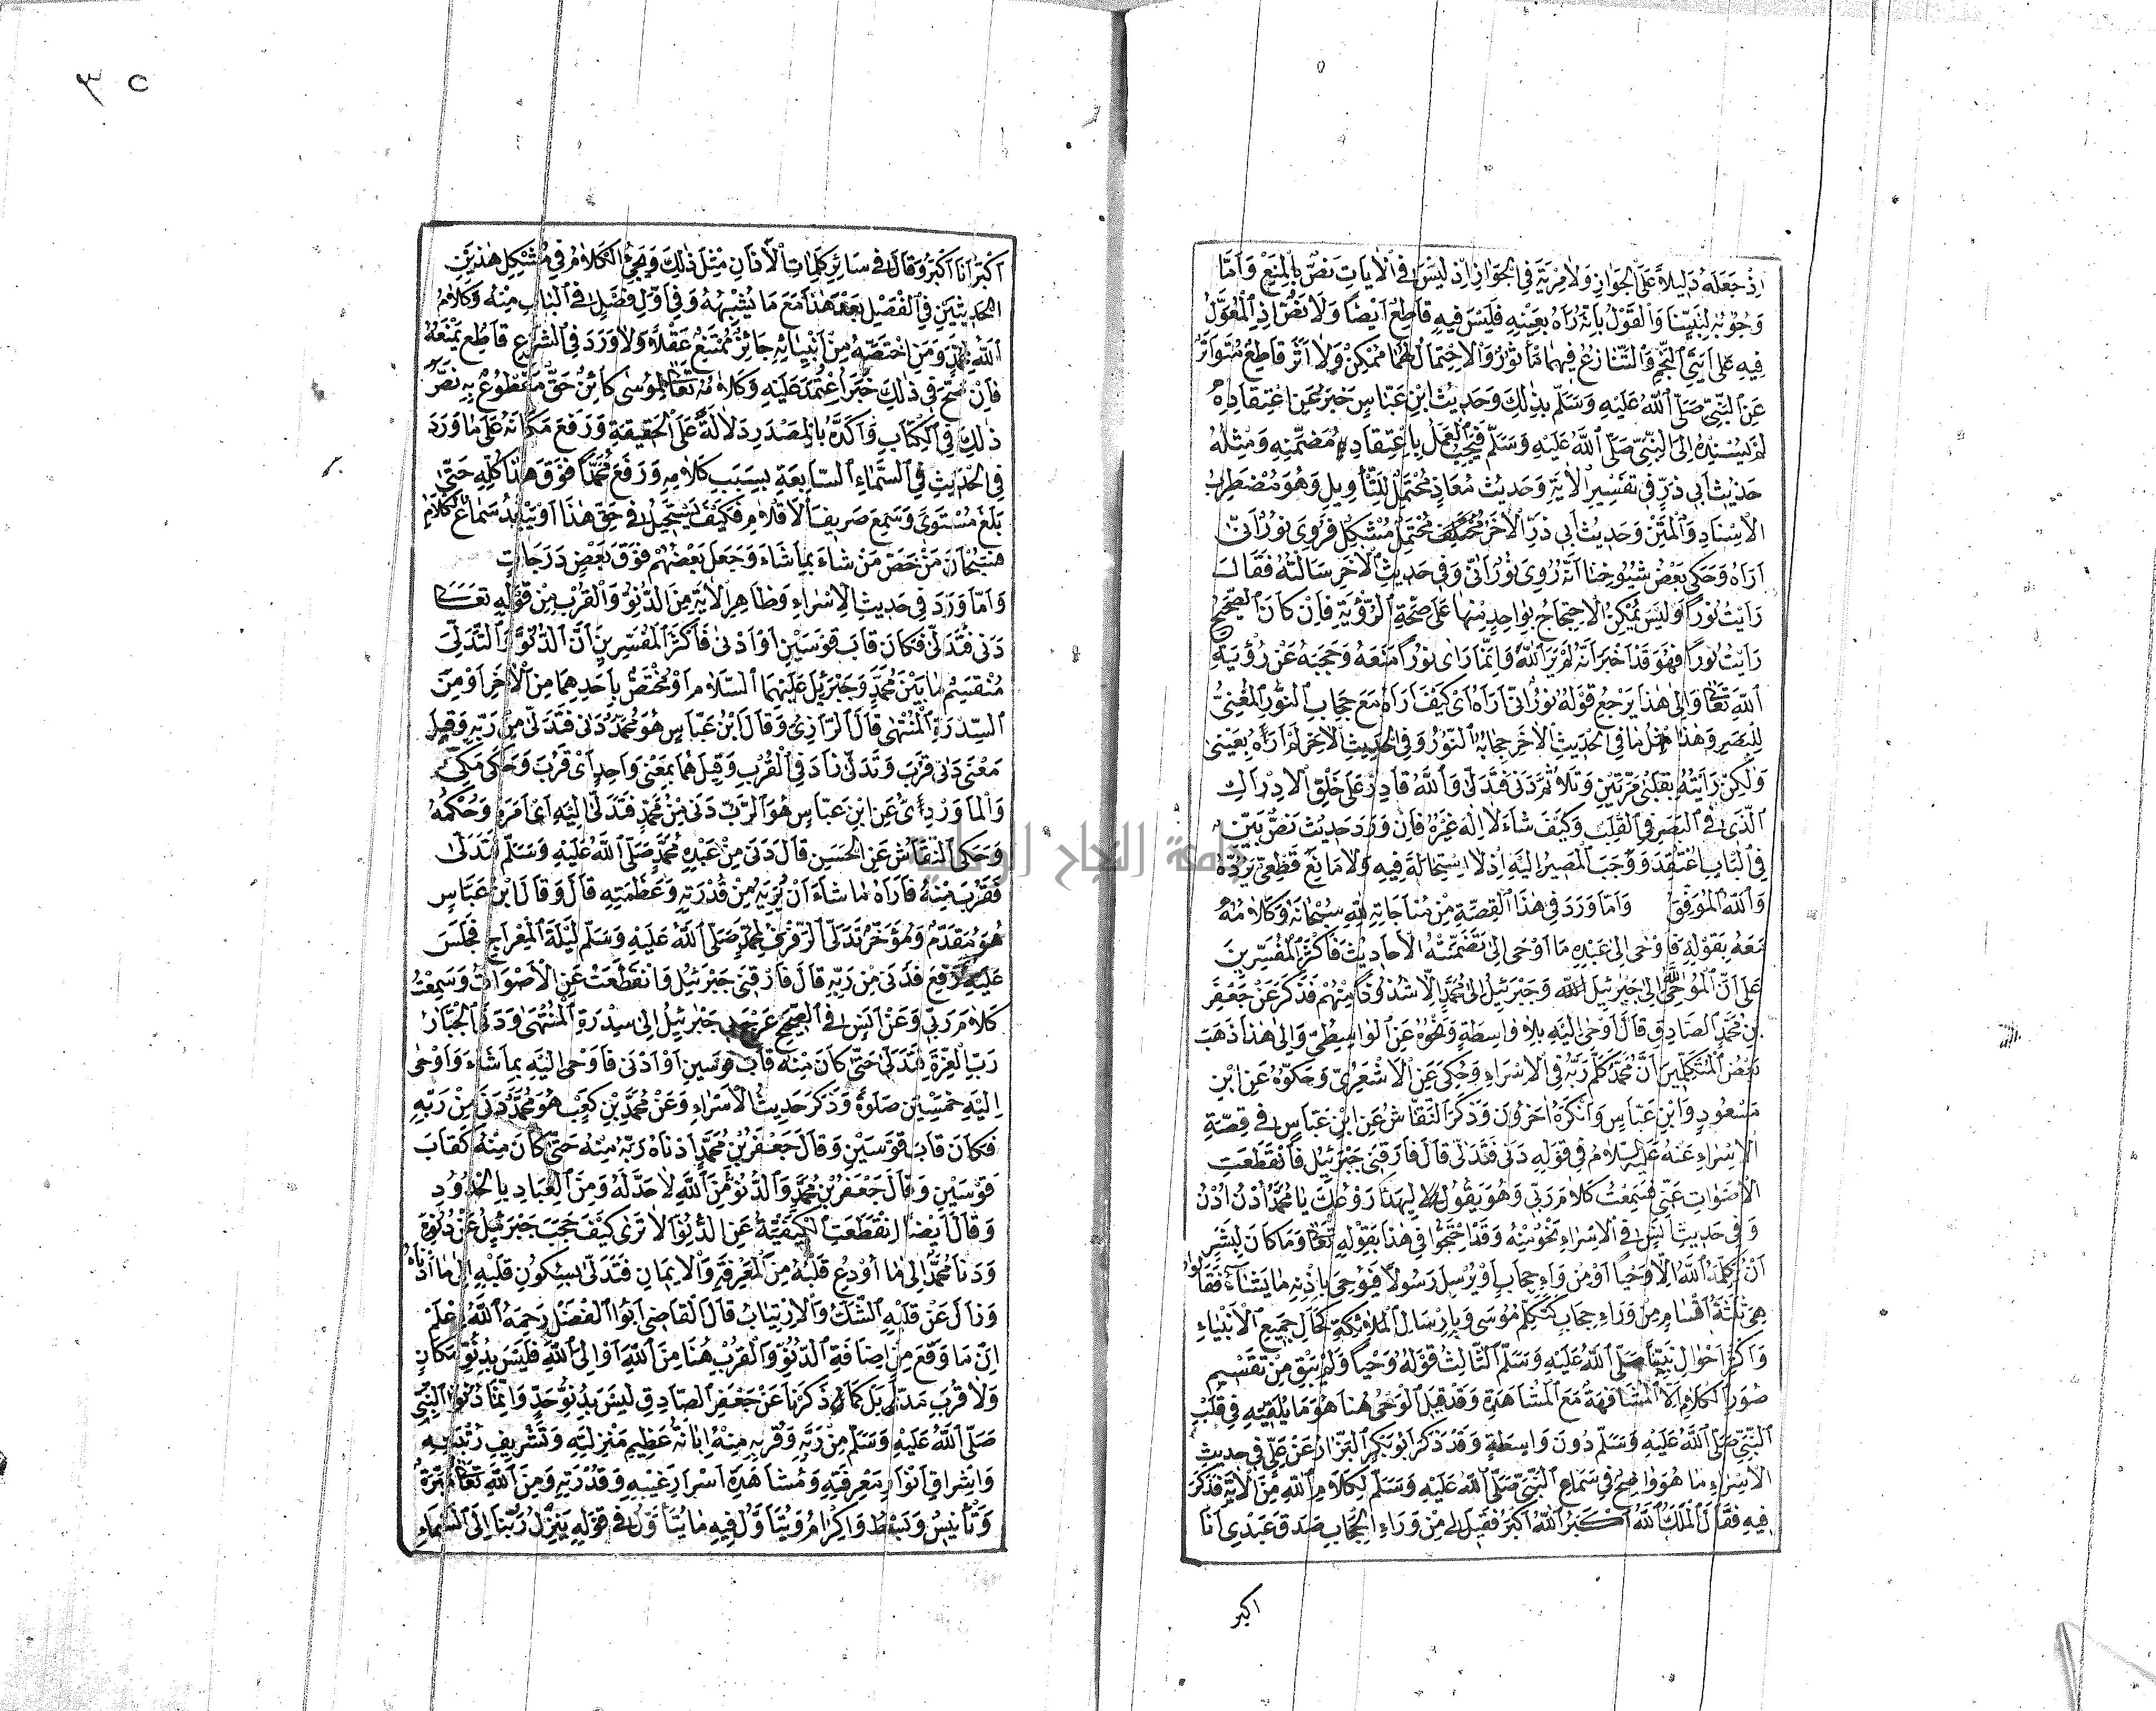 اِذْ جَعَلَهُ دَلِيلاً عَلَى الجَوَازِ وَلا مِرْيَةَ فِي الجَوَازِ اِذْ لَيْسَ فِي الْاٰيَاتِ نَصٌّ بِالمَنْعِ وَاَمَّا
وُجُوبُهُ لِنَبِيِّنَا وَالْقَوْلُ بِاَنَّهُ رَاٰهُ بِعَيْنِهِ فَلَيْسَ فِيهِ قَاطِعٌ اَيْضًا وَلا نَصٌّ اِذِ الْمُعَوَّلُ
فِيهِ عَلَى اٰيَتَيِ النَّجْمِ وَالتَّنَازُعُ فِيهِمَا مَأْثُورٌ وَالْاِحْتِمَالُ لَهُمَا مُمْكِنٌ وَلا اَثَرَ قَاطِعٌ مُتَوَاتِرٌ
عَنِ النَّبِيِّ صَلَّى اللّٰهُ عَلَيْهِ وَسَلَّمَ بِذٰلِكَ وَحَدِيثُ ابْنِ عَبَّاسٍ خَبَرٌ عَنِ اعْتِقَادِهِ
لَمْ يُسْنِدْهُ اِلَى النَّبِيِّ صَلَّى اللّٰهُ عَلَيْهِ وَسَلَّمَ فَيَجِبَ الْعَمَلُ بِاعْتِقَادِهِ مُضَمَّنِهِ وَمِثْلُهُ
حَدِيثُ اَبِي ذَرٍّ فِي تَفْسِيرِ الْاٰيَةِ وَحَدِيثُ مُعَاذٍ مُحْتَمِلٌ لِلتَّأْوِيلِ وَهُوَ مُضْطَرِبُ
الْاِسْنَادِ وَالْمَتْنِ وَحَدِيثُ اَبِي ذَرٍّ الْاٰخَرُ مُخْتَلِفٌ مُحْتَمِلٌ مُشْكِلٌ فَرُوِيَ نُورٌ اَنّٰى
اَرَاهُ وَحَكٰى بَعْضُ شُيُوخِنَا اَنَّهُ رُوِيَ نُورَانِيٌّ وَفِي حَدِيثِ الْاٰخَرِ سَاَلْتُهُ فَقَالَ
رَاَيْتُ نُورًا وَلَيْسَ يُمْكِنُ الْاِحْتِجَاجُ بِوَاحِدٍ مِنْهَا عَلَى صِحَّةِ الرُّؤْيَةِ فَاِنْ كَانَ الصَّحِيحُ
رَاَيْتُ نُورًا فَهُوَ قَدْ اَخْبَرَ اَنَّهُ لَمْ يَرَ اللّٰهَ وَاِنَّمَا رَاٰى نُورًا مَنَعَهُ وَحَجَبَهُ عَنْ رُؤْيَةِ
اللّٰهِ تَعَالٰى وَاِلٰى هٰذَا يَرْجِعُ قَوْلُهُ نُورٌ اَنّٰى اَرَاهُ اَيْ كَيْفَ اَرَاهُ مَعَ حِجَابِ النُّورِ الْمُغْشِي
لِلْبَصَرِ وَهٰذَا مِثْلُ مَا فِي الْحَدِيثِ الْاٰخَرِ حِجَابُهُ النُّورُ وَفِي الْحَدِيثِ الْاٰخَرِ لَمْ اَرَهُ بِعَيْنِي
وَلٰكِنْ رَاَيْتُهُ بِقَلْبِي مَرَّتَيْنِ وَتَلا ثُمَّ دَنٰى فَتَدَلّٰى وَاللّٰهُ قَادِرٌ عَلَى خَلْقِ الْاِدْرَاكِ
الَّذِي فِي الْبَصَرِ فِي الْقَلْبِ وَكَيْفَ شَاءَ لا اِلٰهَ غَيْرُهُ فَاِنْ وَرَدَ حَدِيثُ نَصٍّ بَيِّنٌ
فِي الْبَابِ اعْتُقِدَ وَوَجَبَ الْمَصِيرُ اِلَيْهِ اِذْ لا اسْتِحَالَةَ فِيهِ وَلا مَانِعَ قَطْعِيٌّ يَرُدُّهُ
وَاللّٰهُ الْمُوَفِّقُ وَاَمَّا وَرَدَ فِي هٰذَا الْقِصَّةِ مِنْ مُنَاجَاتِهِ لِلّٰهِ سُبْحَانَهُ وَكَلامِهِ
مَعَهُ بِقَوْلِهِ فَاَوْحٰى اِلٰى عَبْدِهِ مَا اَوْحٰى اِلٰى تَضَمَّنَتْهُ الْاَحَادِيثُ فَاَكْثَرُ الْمُفَسِّرِينَ
عَلَى اَنَّ الْمُوحِيَ اللّٰهُ اِلٰى جِبْرَئِيلَ وَجِبْرَئِيلُ اِلٰى مُحَمَّدٍ اِلَّا شُذُوذًا مِنْهُمْ فَذُكِرَ عَنْ جَعْفَرِ
بْنِ مُحَمَّدٍ الصَّادِقِ قَالَ اَوْحٰى اِلَيْهِ بِلا وَاسِطَةٍ وَنَحْوُهُ عَنِ الْوَاسِطِيِّ وَاِلٰى هٰذَا ذَهَبَ
بَعْضُ الْمُتَكَلِّمِينَ اَنَّ مُحَمَّدًا كَلَّمَ رَبَّهُ فِي الْاِسْرَاءِ وَحُكِيَ عَنِ الْاَشْعَرِيِّ وَحَكَوْهُ عَنِ ابْنِ
مَسْعُودٍ وَابْنِ عَبَّاسٍ وَاَنْكَرَهُ اٰخَرُونَ وَذَكَرَ النَّقَّاشُ عَنِ ابْنِ عَبَّاسٍ فِي قِصَّةِ
الْاِسْرَاءِ عَنْهُ عَلَيْهِ السَّلامُ فِي قَوْلِهِ دَنٰى فَتَدَلّٰى قَالَ فَارَقَنِي جِبْرَئِيلُ فَانْقَطَعَتِ
الْاَصْوَاتُ عَنِّي فَسَمِعْتُ كَلامَ رَبِّي وَهُوَ يَقُولُ لِيَهْدَأْ رَوْعُكَ يَا مُحَمَّدُ اُدْنُ اُدْنُ
وَفِي حَدِيثِ اَنَسٍ فِي الْاِسْرَاءِ نَحْوٌ مِنْهُ وَقَدِ احْتَجُّوا فِي هٰذَا بِقَوْلِهِ تَعَالٰى وَمَا كَانَ لِبَشَرٍ
اَنْ يُكَلِّمَهُ اللّٰهُ اِلَّا وَحْيًا اَوْ مِنْ وَرَاءِ حِجَابٍ اَوْ يُرْسِلَ رَسُولًا فَيُوحِيَ بِاِذْنِهِ مَا يَشَاءُ فَقَالُوا
هِيَ ثَلٰثَةُ اَقْسَامٍ مِنْ وَرَاءِ حِجَابٍ كَتَكْلِيمِ مُوسٰى وَبِاِرْسَالِ الْمَلائِكَةِ كَحَالِ جَمِيعِ الْاَنْبِيَاءِ
وَاَكْثَرِ اَحْوَالِ نَبِيِّنَا صَلَّى اللّٰهُ عَلَيْهِ وَسَلَّمَ الثَّالِثُ قَوْلُهُ وَحْيًا وَلَمْ يَبْقَ مِنْ تَقْسِيمِ
صُوَرِ الْكَلامِ اِلَّا الْمُشَافَهَةُ مَعَ الْمُشَاهَدَةِ وَقَدْ قِيلَ الْوَحْيُ هُنَا هُوَ مَا يُلْقِيهِ فِي قَلْبِ
النَّبِيِّ صَلَّى اللّٰهُ عَلَيْهِ وَسَلَّمَ دُونَ وَاسِطَةٍ وَقَدْ ذَكَرَ اَبُو بَكْرٍ الْبَزَّارُ عَنْ عَلِيٍّ فِي حَدِيثِ
الْاِسْرَاءِ مَا هُوَ اَوْضَحُ فِي سَمَاعِ النَّبِيِّ صَلَّى اللّٰهُ عَلَيْهِ وَسَلَّمَ لِكَلامِ اللّٰهِ مِنَ الْاٰيَةِ فَذَكَرَ
فِيهِ فَقَالَ الْمَلَكُ اللّٰهُ اَكْبَرُ اللّٰهُ اَكْبَرُ فَقِيلَ لِي مِنْ وَرَاءِ الْحِجَابِ صَدَقَ عَبْدِي اَنَا
اكبر
٣٥
اَكْبَرُ اَنَا اَكْبَرُ وَقَالَ فِي سَائِرِ كَلِمَاتِ الْاَذَانِ مِثْلَ ذٰلِكَ وَيَجِيءُ الْكَلامُ فِي مُشْكِلِ هٰذَيْنِ
الْحَدِيثَيْنِ فِي الْفَصْلِ بَعْدَ هٰذَا مَعَ مَا يُشْبِهُهُ وَفِي اَوَّلِ فَصْلٍ فِي الْبَابِ مِنْهُ وَكَلامُ
اللّٰهِ لِمُحَمَّدٍ وَمَنِ اخْتَصَّهُ مِنْ اَنْبِيَائِهِ جَائِزٌ غَيْرُ مُمْتَنِعٍ عَقْلًا وَلا وَرَدَ فِي الشَّرْعِ قَاطِعٌ يَمْنَعُهُ
فَاِنْ صَحَّ فِي ذٰلِكَ خَبَرٌ اعْتُمِدَ عَلَيْهِ وَكَلامُهُ تَعَالٰى لِمُوسٰى كَائِنٌ حَقٌّ مَقْطُوعٌ بِهِ نَصَّ
ذٰلِكَ فِي الْكِتَابِ وَاَكَّدَهُ بِالْمَصْدَرِ دَلالَةً عَلَى الْحَقِيقَةِ وَرَفَعَ مَكَانَهُ عَلَى مَا وَرَدَ
فِي الْحَدِيثِ فِي السَّمَاءِ السَّابِعَةِ بِسَبَبِ كَلامِهِ وَرَفَعَ مُحَمَّدًا فَوْقَ هٰذَا كُلِّهِ حَتّٰى
بَلَغَ مُسْتَوًى وَسَمِعَ صَرِيفَ الْاَقْلامِ فَكَيْفَ يَسْتَحِيلُ فِي حَقِّ هٰذَا اَوْ يَبْعُدُ سَمَاعُ الْكَلامِ
فَسُبْحَانَ مَنْ خَصَّ مَنْ شَاءَ بِمَا شَاءَ وَجَعَلَ بَعْضَهُمْ فَوْقَ بَعْضٍ دَرَجَاتٍ
وَاَمَّا وَرَدَ فِي حَدِيثِ الْاِسْرَاءِ وَظَاهِرِ الْاٰيَةِ مِنَ الدُّنُوِّ وَالْقُرْبِ مِنْ قَوْلِهِ تَعَالٰى
دَنٰى فَتَدَلّٰى فَكَانَ قَابَ قَوْسَيْنِ اَوْ اَدْنٰى فَاَكْثَرُ الْمُفَسِّرِينَ اَنَّ الدُّنُوَّ وَالتَّدَلِّيَ
مُنْقَسِمٌ مَا بَيْنَ مُحَمَّدٍ وَجِبْرَئِيلَ عَلَيْهِمَا السَّلامُ اَوْ مُخْتَصٌّ بِاَحَدِهِمَا مِنَ الْاٰخَرِ اَوْ مِنَ
السِّدْرَةِ الْمُنْتَهٰى قَالَ الرَّازِيُّ وَقَالَ ابْنُ عَبَّاسٍ هُوَ مُحَمَّدٌ دَنٰى فَتَدَلّٰى مِنْ رَبِّهِ وَقِيلَ
مَعْنَى دَنٰى قَرُبَ وَتَدَلّٰى زَادَ فِي الْقُرْبِ وَقِيلَ هُمَا بِمَعْنًى وَاحِدٍ اَيْ قَرُبَ وَحَكٰى مَكِّيٌّ
وَالْمَاوَرْدِيُّ عَنِ ابْنِ عَبَّاسٍ هُوَ الرَّبُّ دَنٰى مِنْ مُحَمَّدٍ فَتَدَلّٰى اِلَيْهِ اَيْ اَمْرُهُ وَحُكْمُهُ
وَحَكَى النَّقَّاشُ عَنِ الْحَسَنِ قَالَ دَنٰى مِنْ عَبْدِهِ مُحَمَّدٍ صَلَّى اللّٰهُ عَلَيْهِ وَسَلَّمَ فَتَدَلّٰى
فَقَرُبَ مِنْهُ فَاَرَاهُ مَا شَاءَ اَنْ يُرِيَهُ مِنْ قُدْرَتِهِ وَعَظَمَتِهِ قَالَ وَقَالَ ابْنُ عَبَّاسٍ
هُوَ مُقَدَّمٌ وَمُؤَخَّرٌ تَدَلَّى الرَّفْرَفُ لِمُحَمَّدٍ صَلَّى اللّٰهُ عَلَيْهِ وَسَلَّمَ لَيْلَةَ الْمِعْرَاجِ فَجَلَسَ
عَلَيْهِ فَرُفِعَ فَدَنٰى مِنْ رَبِّهِ قَالَ فَارَقَنِي جِبْرَئِيلُ وَانْقَطَعَتْ عَنِّي الْاَصْوَاتُ وَسَمِعْتُ
كَلامَ رَبِّي وَعَنْ اَنَسٍ فِي الصَّحِيحِ عَرَجَ بِي جِبْرَئِيلُ اِلٰى سِدْرَةِ الْمُنْتَهٰى وَدَنَى الْجَبَّارُ
رَبُّ الْعِزَّةِ فَتَدَلّٰى حَتّٰى كَانَ مِنْهُ قَابَ قَوْسَيْنِ اَوْ اَدْنٰى فَاَوْحٰى اِلَيْهِ بِمَا شَاءَ وَاَوْحٰى
اِلَيْهِ خَمْسِينَ صَلٰوةً وَذَكَرَ حَدِيثَ الْاِسْرَاءِ وَعَنْ مُحَمَّدِ بْنِ كَعْبٍ هُوَ مُحَمَّدٌ دَنٰى مِنْ رَبِّهِ
فَكَانَ قَابَ قَوْسَيْنِ وَقَالَ جَعْفَرُ بْنُ مُحَمَّدٍ اَدْنَاهُ رَبُّهُ مِنْهُ حَتّٰى كَانَ مِنْهُ كَقَابَ
قَوْسَيْنِ وَقَالَ جَعْفَرُ بْنُ مُحَمَّدٍ وَالدُّنُوُّ مِنَ اللّٰهِ لا حَدَّ لَهُ وَمِنَ الْعِبَادِ بِالْحُدُودِ
وَقَالَ اَيْضًا انْقَطَعَتِ الْكَيْفِيَّةُ عَنِ الدُّنُوِّ اَلا تَرٰى كَيْفَ حَجَبَ جِبْرَئِيلَ عَنْ دُنُوِّهِ
وَدَنَا مُحَمَّدٌ اِلٰى مَا اُودِعَ قَلْبُهُ مِنَ الْمَعْرِفَةِ وَالْاِيمَانِ فَتَدَلّٰى بِسُكُونِ قَلْبِهِ اِلٰى مَا اَدْنَاهُ
وَزَالَ عَنْ قَلْبِهِ الشَّكُّ وَالْاِرْتِيَابُ قَالَ الْقَاضِي اَبُو الْفَضْلِ رَحِمَهُ اللّٰهُ اِعْلَمْ
اِنَّ مَا وَقَعَ مِنْ اِضَافَةِ الدُّنُوِّ وَالْقُرْبِ هُنَا مِنَ اللّٰهِ اَوْ اِلَى اللّٰهِ فَلَيْسَ بِدُنُوِّ مَكَانٍ
وَلا قُرْبِ مَدًى بَلْ كَمَا ذَكَرْنَا عَنْ جَعْفَرٍ الصَّادِقِ لَيْسَ بِدُنُوِّ حَدٍّ وَاِنَّمَا دُنُوُّ النَّبِيِّ
صَلَّى اللّٰهُ عَلَيْهِ وَسَلَّمَ مِنْ رَبِّهِ وَقُرْبِهِ مِنْهُ اِبَانَةُ عَظِيمِ مَنْزِلَتِهِ وَتَشْرِيفِ رُتْبَتِهِ
وَاِشْرَاقِ اَنْوَارِ مَعْرِفَتِهِ وَمُشَاهَدَةِ اَسْرَارِ غَيْبِهِ وَقُدْرَتِهِ وَمِنَ اللّٰهِ تَعَالٰى مَبَرَّةٌ
وَتَأْنِيسٌ وَبَسْطٌ وَاِكْرَامٌ وَيُتَاَوَّلُ فِيهِ مَا يُتَاَوَّلُ فِي قَوْلِهِ يَنْزِلُ رَبُّنَا اِلَى السَّمَاءِ
جامعة النجاح الوطنية